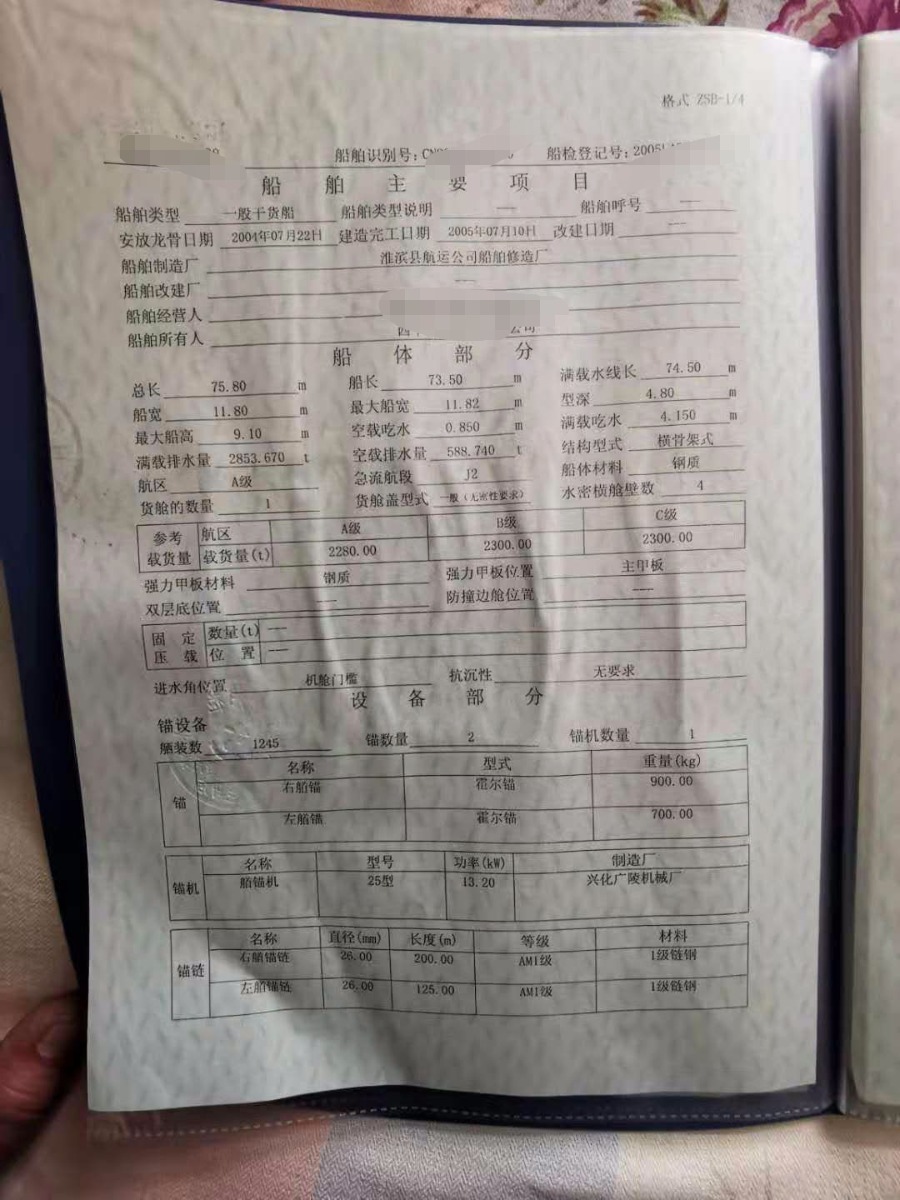 格式 ZSB-1/4
船舶识别号: 船检登记号:2005
船舶主要项目
船舶类型 一般干货船 船舶类型说明 —— 船舶呼号 ——
安放龙骨日期 2004年07月22日 建造完工日期 2005年07月10日 改建日期 ——
船舶制造厂 淮滨县航运公司船舶修造厂
船舶改建厂 ——
船舶经营人
船舶所有人 公司
船体部分
总长 75.80 m 船长 73.50 m 满载水线长 74.50 m
船宽 11.80 m 最大船宽 11.82 m 型深 4.80 m
最大船高 9.10 m 空载吃水 0.850 m 满载吃水 4.150 m
满载排水量 2853.670 t 空载排水量 588.740 t 结构型式 横骨架式
航区 A级 急流航段 J2 船体材料 钢质
货舱的数量 1 货舱盖型式 一般(无密性要求) 水密横舱壁数 4
参考载货量 航区 A级 B级 C级
载货量(t) 2280.00 2300.00 2300.00
强力甲板材料 钢质 强力甲板位置 主甲板
双层底位置 —— 防撞边舱位置 ——
固定压载 数量(t) ——
位置 ——
进水角位置 机舱门槛 抗沉性 无要求
设备部分
锚设备
舾装数 1245 锚数量 2 锚机数量 1
锚 名称 型式 重量(kg)
右艏锚 霍尔锚 900.00
左艏锚 霍尔锚 700.00
锚机 名称 型号 功率(kW) 制造厂
艏锚机 25型 13.20 兴化广陵机械厂
锚链 名称 直径(mm) 长度(m) 等级 材料
右艏锚链 26.00 200.00 AM1级 1级链钢
左艏锚链 26.00 125.00 AM1级 1级链钢